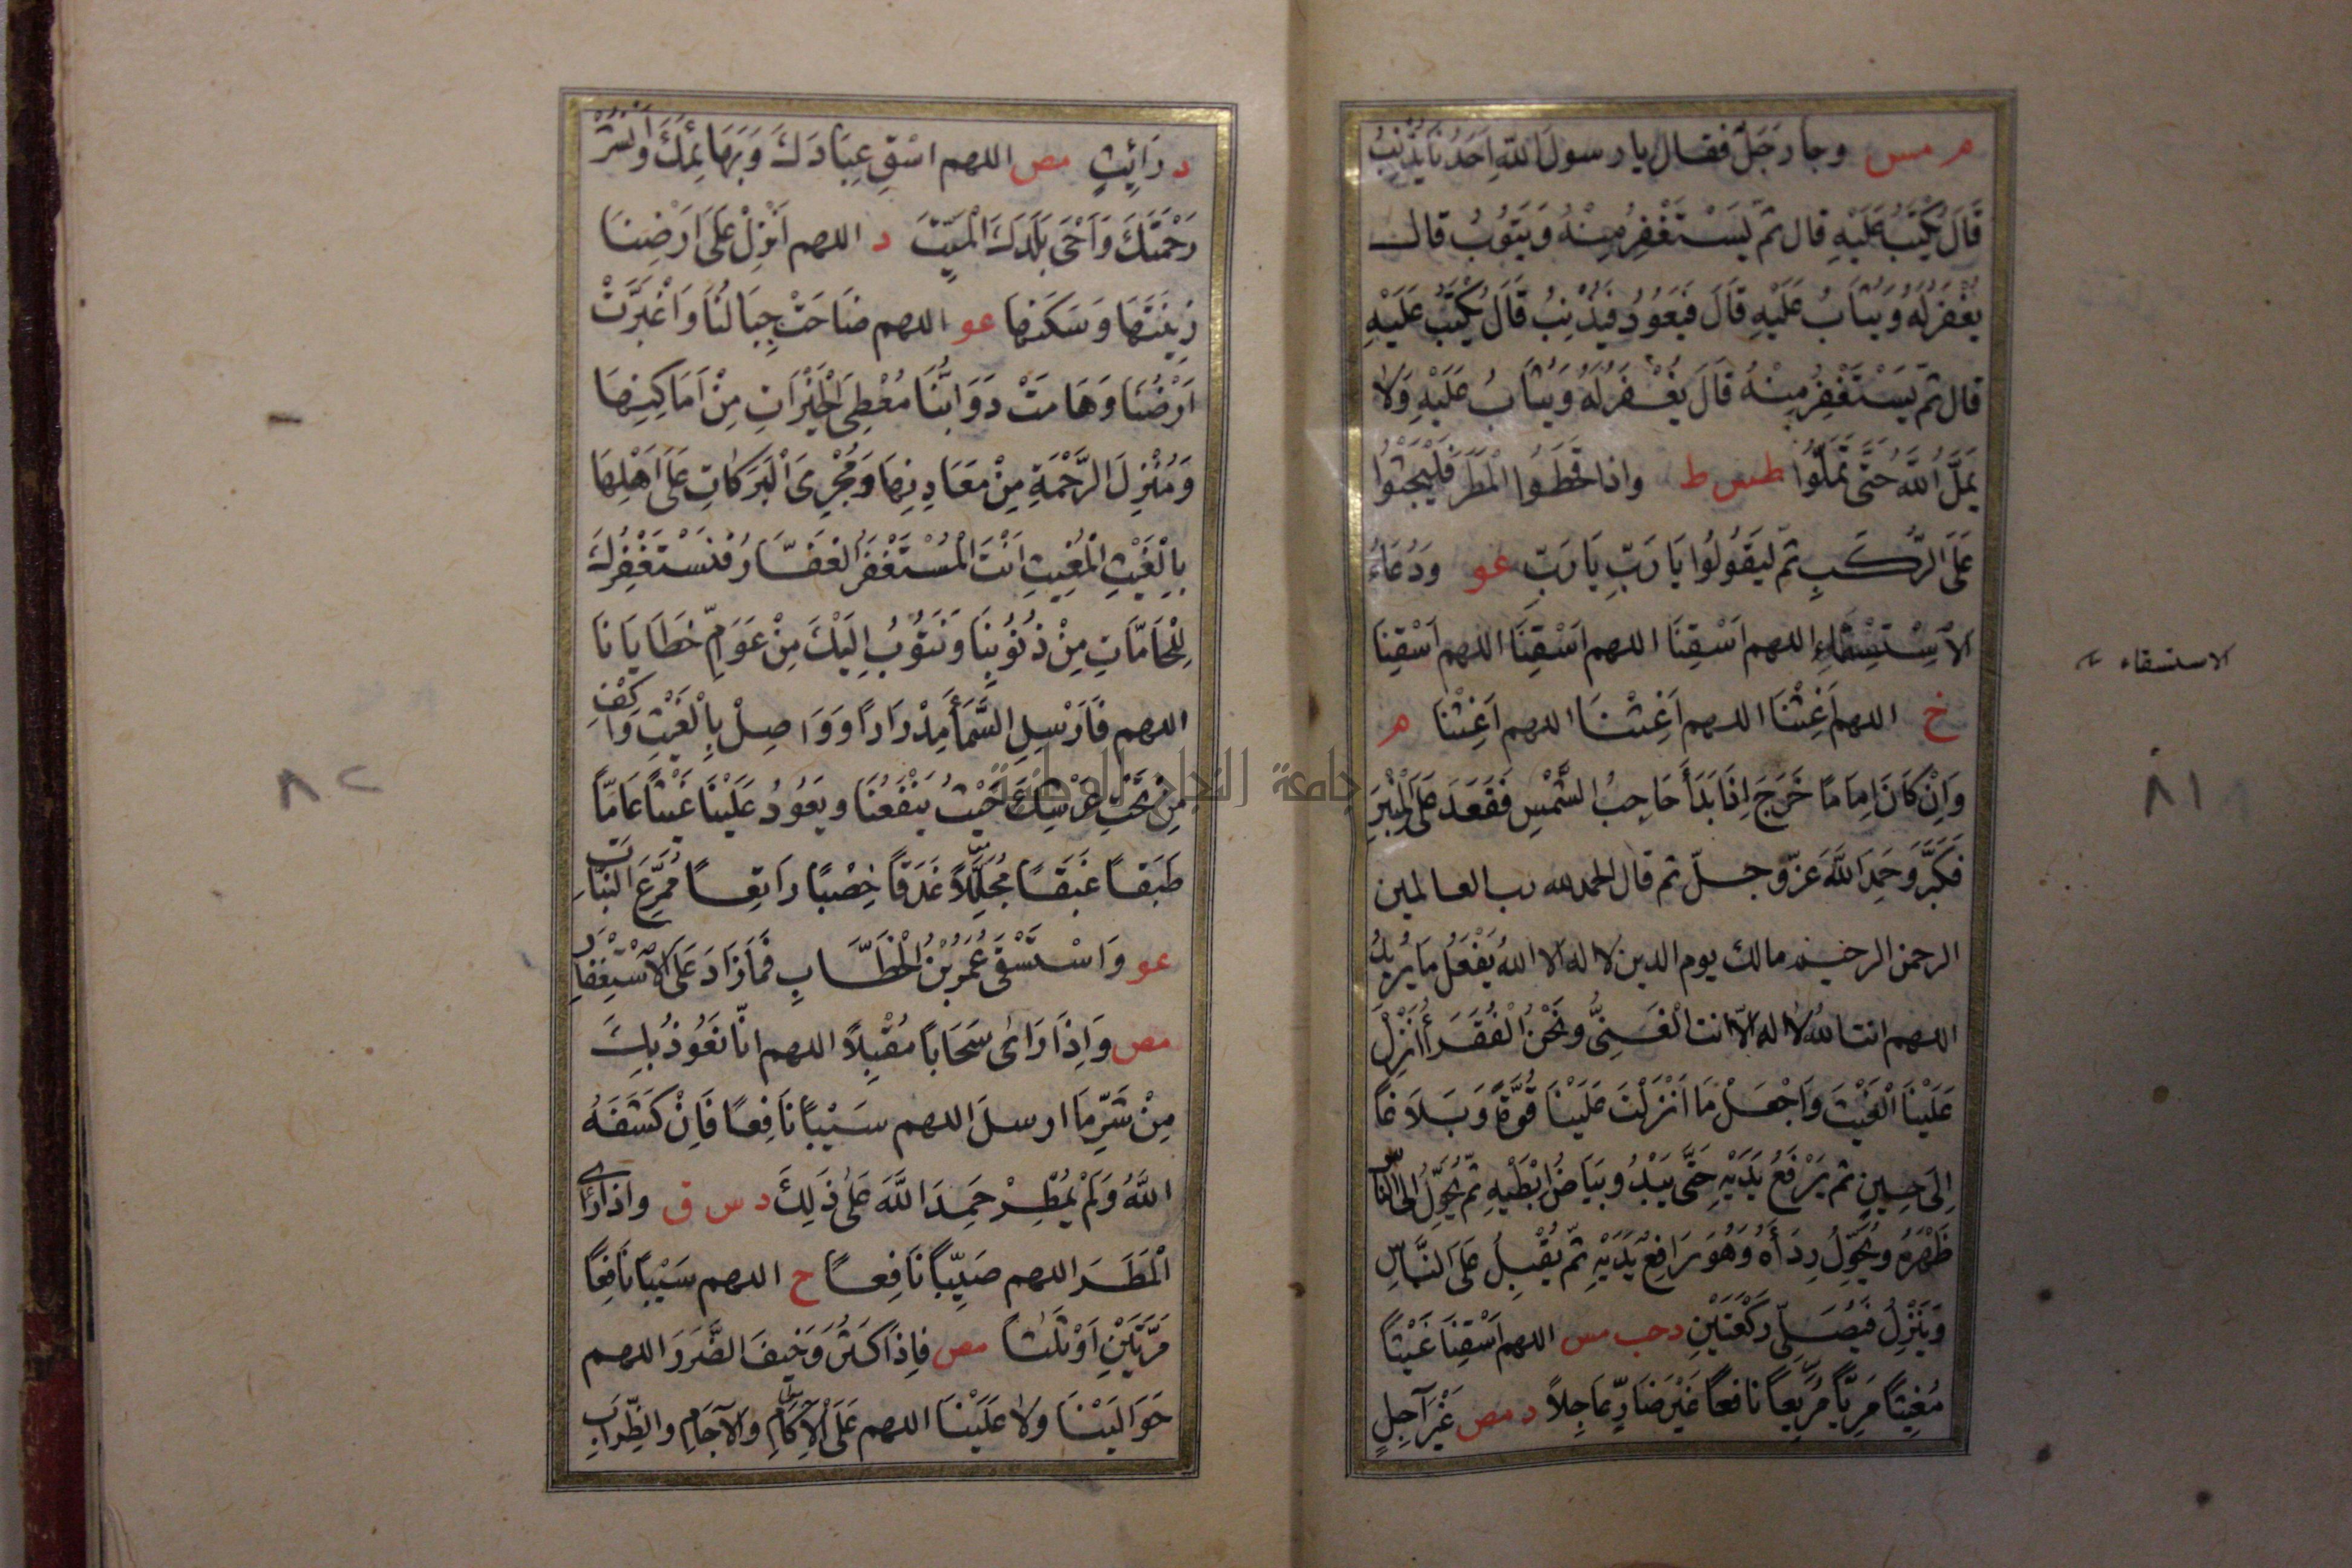 م مس وجاء رَجُلٌ فقال يا رسولَ اللهِ اَحَدُنَا يُذْنِبُ
قَالَ يُكْتَبُ عَلَيْهِ قال ثمّ يَسْتَغْفِرُ مِنْهُ وَيَتُوبُ قال
يُغْفَرُ لَهُ وَيُتَابُ عَلَيْهِ قَالَ فَيَعُودُ فَيُذْنِبُ قَالَ يُكْتَبُ عَلَيْهِ
قال ثمّ يَسْتَغْفِرُ مِنْهُ قَالَ يُغْفَرُ لَهُ وَيُتَابُ عَلَيْهِ وَلَا
يَمَلُّ اللَّهُ حَتَّى تَمَلُّوا طس ط واذا قَحَطُوا الْمَطَرَ فَلْيَجْثُوا
عَلَى الرُّكَبِ ثمّ ليَقُولُوا يَا رَبِّ يَا رَبِّ عو وَدُعَاءُ
الاِسْتِسْقَاءِ اللهم اَسْقِنَا اللهم اَسْقِنَا اللهم اَسْقِنَا
خ اللهم اَغِثْنَا اللهم اَغِثْنَا اللهم اَغِثْنَا م
وَاِنْ كَانَ اِمَامًا خَرَجَ اِذَا بَدَأَ حَاجِبُ الشَّمْسِ فَقَعَدَ عَلَى الْمِنْبَرِ
فَكَبَّرَ وَحَمِدَ اللَّهَ عَزّ وجلّ ثم قال الحمد لله رب العالمين
الرحمن الرحيم مالك يوم الدين لا اله الا اللهُ يَفْعَلُ مَا يُرِيدُ
اللهم انت اللهُ لا اله الّا انت الْغَنِىُّ ونَحْنُ الْفُقَرَأُ اَنْزِلْ
عَلَيْنَا الْغَيْثَ وَاجْعَلْ مَا اَنْزَلْتَ عَلَيْنَا قُوَّةً وَبَلَاغًا
اِلَى حِينٍ ثم يَرْفَعُ يَدَيْهِ حَتَّى يَبْدُوَ بَيَاضُ اِبْطَيْهِ ثمّ يُحَوِّلُ اِلَى النَّاسِ
ظَهْرَهُ ويُحَوِّلُ رِدَأَهُ وَهُوَ رَافِعٌ يَدَيْهِ ثمّ يُقْبِلُ عَلَى النَّاسِ
وَيَنْزِلُ فَيُصَلِّى رَكْعَتَيْنِ د حب مس اللهم اَسْقِنَا غَيْثًا
مُغِيثًا مَرِيًّا مُرِيعًا نافعًا غَيْرَ ضَارٍّ عَاجِلاً د مص غَيْرَ آجِلٍ
الاستسقاء
٨١
د رَائِثٍ مص اللهم اسْقِ عِبَادَكَ وَبَهَائِمَكَ وَانْشُرْ
رَحْمَتَكَ وَاَحْىِ بَلَدَكَ الْمَيِّتَ د اللهم اَنْزِلْ عَلَى اَرْضِنَا
زِينَتَهَا وَسَكَنَهَا عو اللهم ضَاحَتْ جِبَالُنَا وَاغْبَرَّتْ
اَرْضُنَا وَهَامَتْ دَوَابُّنَا مُعْطِىَ الْخَيْرَاتِ مِنْ اَمَاكِنِهَا
وَمُنْزِلَ الرَّحْمَةِ مِنْ مَعَادِنِهَا وَمُجْرِىَ الْبَرَكَاتِ عَلَى اَهْلِهَا
بِالْغَيْثِ الْمُغِيثِ اَنْتَ الْمُسْتَغْفَرُ الْغَفَّارُ فَنَسْتَغْفِرُكَ
لِلْحَامَّاتِ مِنْ ذُنُوبِنَا وَنَتُوبُ اِلَيْكَ مِنْ عَوَامِّ خَطَايَانَا
اللهم فَاَرْسِلِ السَّمَأَ مِدْرَارًا وَوَاصِلْ بِالْغَيْثِ وَاكِفِ
مِنْ تَحْتِ عَرْشِكَ حَيْثُ يَنْفَعُنَا ويَعُودُ عَلَيْنَا غَيْثًا عَامًّا
طَبَقًا غَبَقًا مُجَلِّلاً غَدَقًا خِصْبًا رَاتِعًا مُمْرِعَ النَّبَاتِ
عو وَاسْتَسْقَى عُمَرُ بْنُ الْخَطَّابِ فَمَا زَادَ عَلَى الاِسْتِغْفَارِ
مص وَاِذَا رَاىَ سَحَابًا مُقْبِلاً اللهم انّا نَعُوذُ بِكَ
مِنْ شَرِّ مَا ارسلَ اللهم سَيْبًا نَافِعًا فَاِنْ كَشَفَهُ
اللَّهُ وَلَمْ يُمْطِرْ حَمِدَ اللَّهَ عَلَى ذَلِكَ د س ق واذا رَاَى
الْمَطَرَ اللهم صَيِّبًا نَافِعًا خ اللهم سَيْبًا نَافِعًا
مَرَّتَيْنِ اَوْ ثَلٰثًا مص فَاِذَا كَثُرَ وَخِيفَ الضَّرَرَ اللهم
حَوَالَيْنَا ولا عَلَيْنَا اللهم عَلَى الْآكَامِ والآجَامِ والظِّرَابِ
٨٢
جامعة النجاح الوطنية